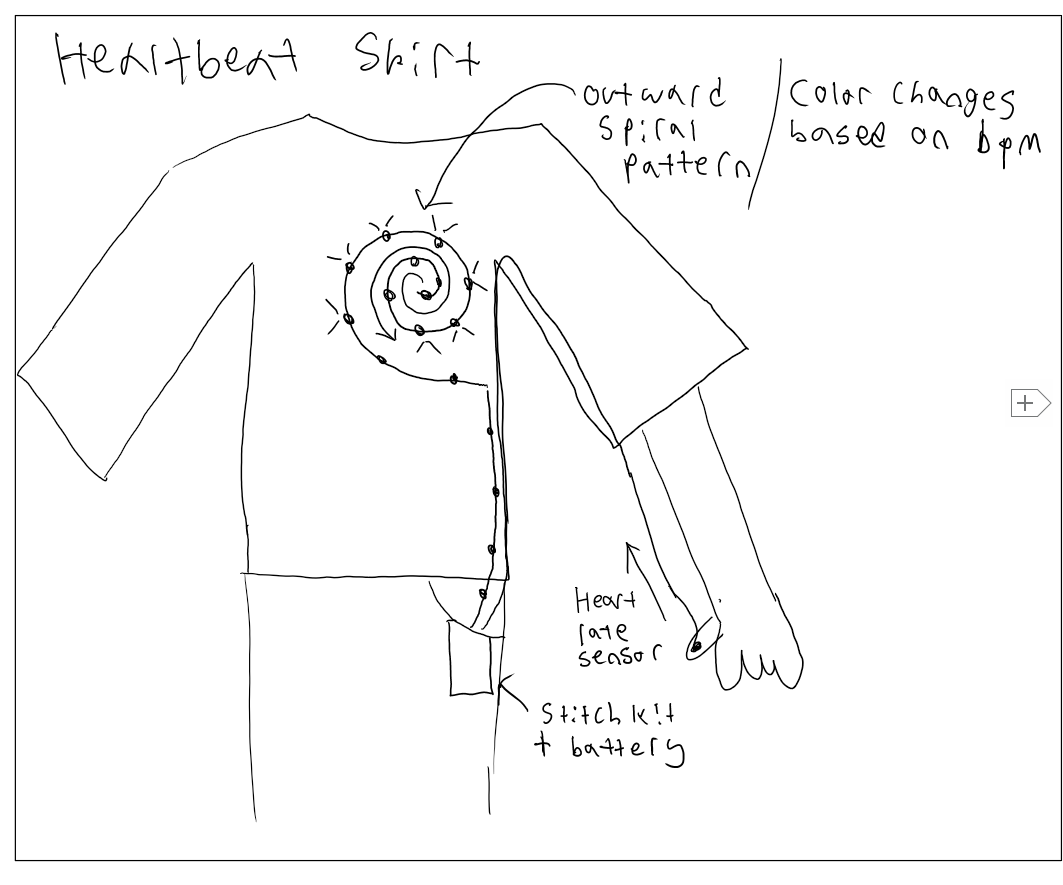 Heartbeat Shirt
outward
spiral
pattern
Color changes
based on bpm
Heart
rate
sensor
Stitchkit
+ battery